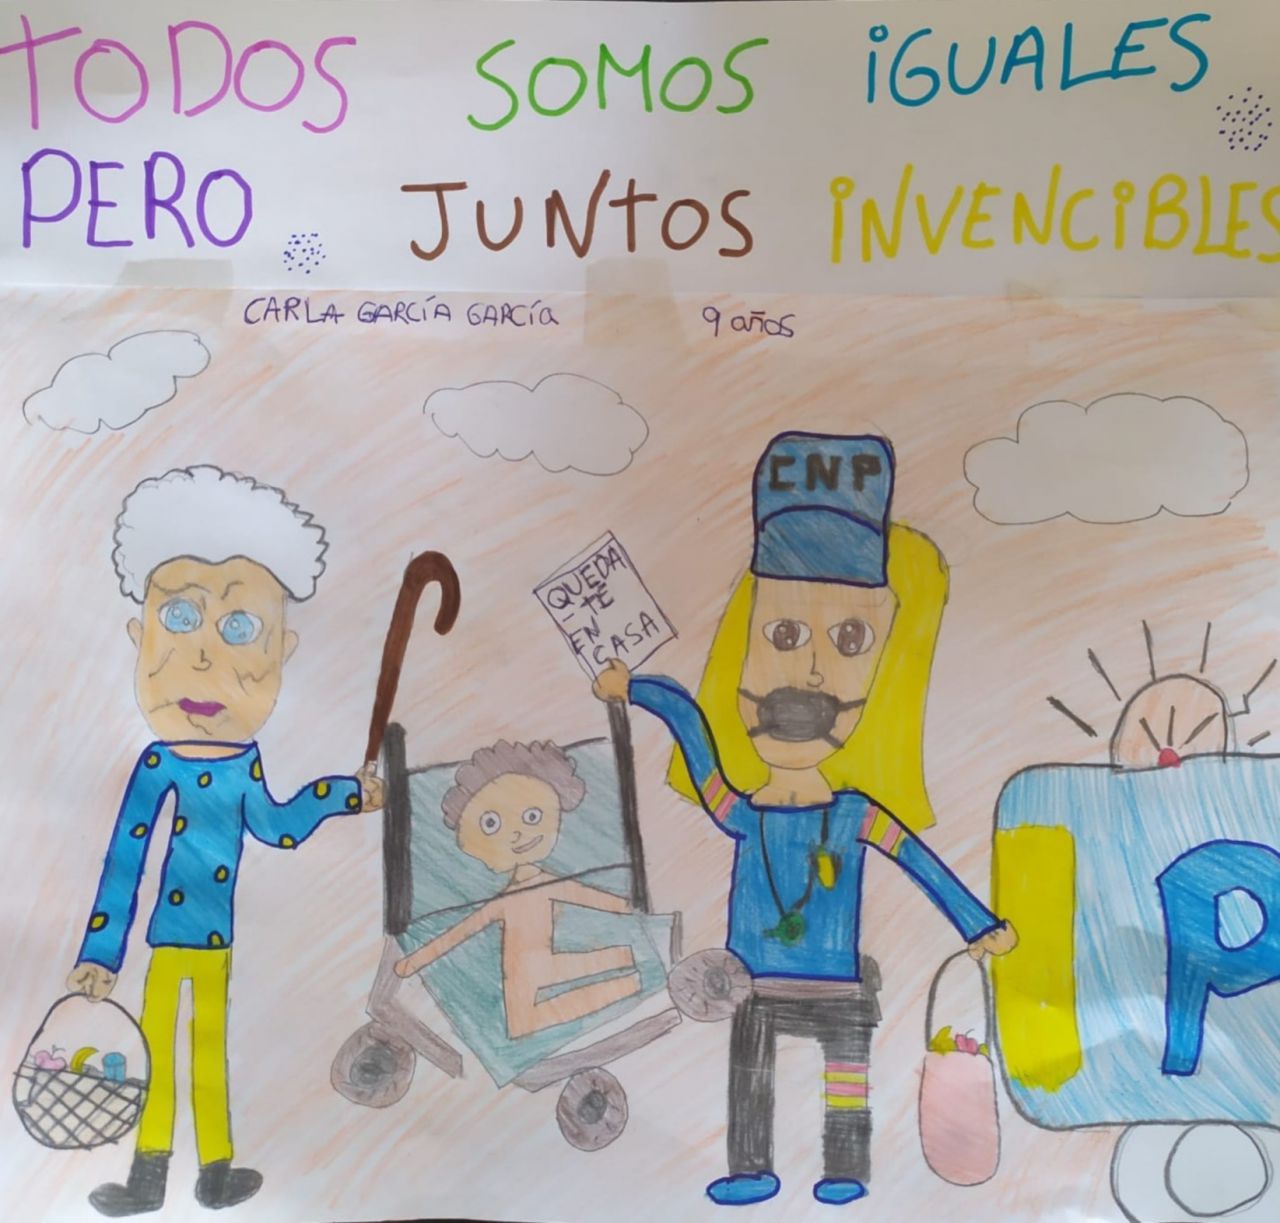 TODOS SOMOS iGUALES
PERO JUNTOS iNVENCiBLES
CARLA GARCÍA GARCÍA 9 años
CNP
QUEDA
-TE
EN
CASA
P